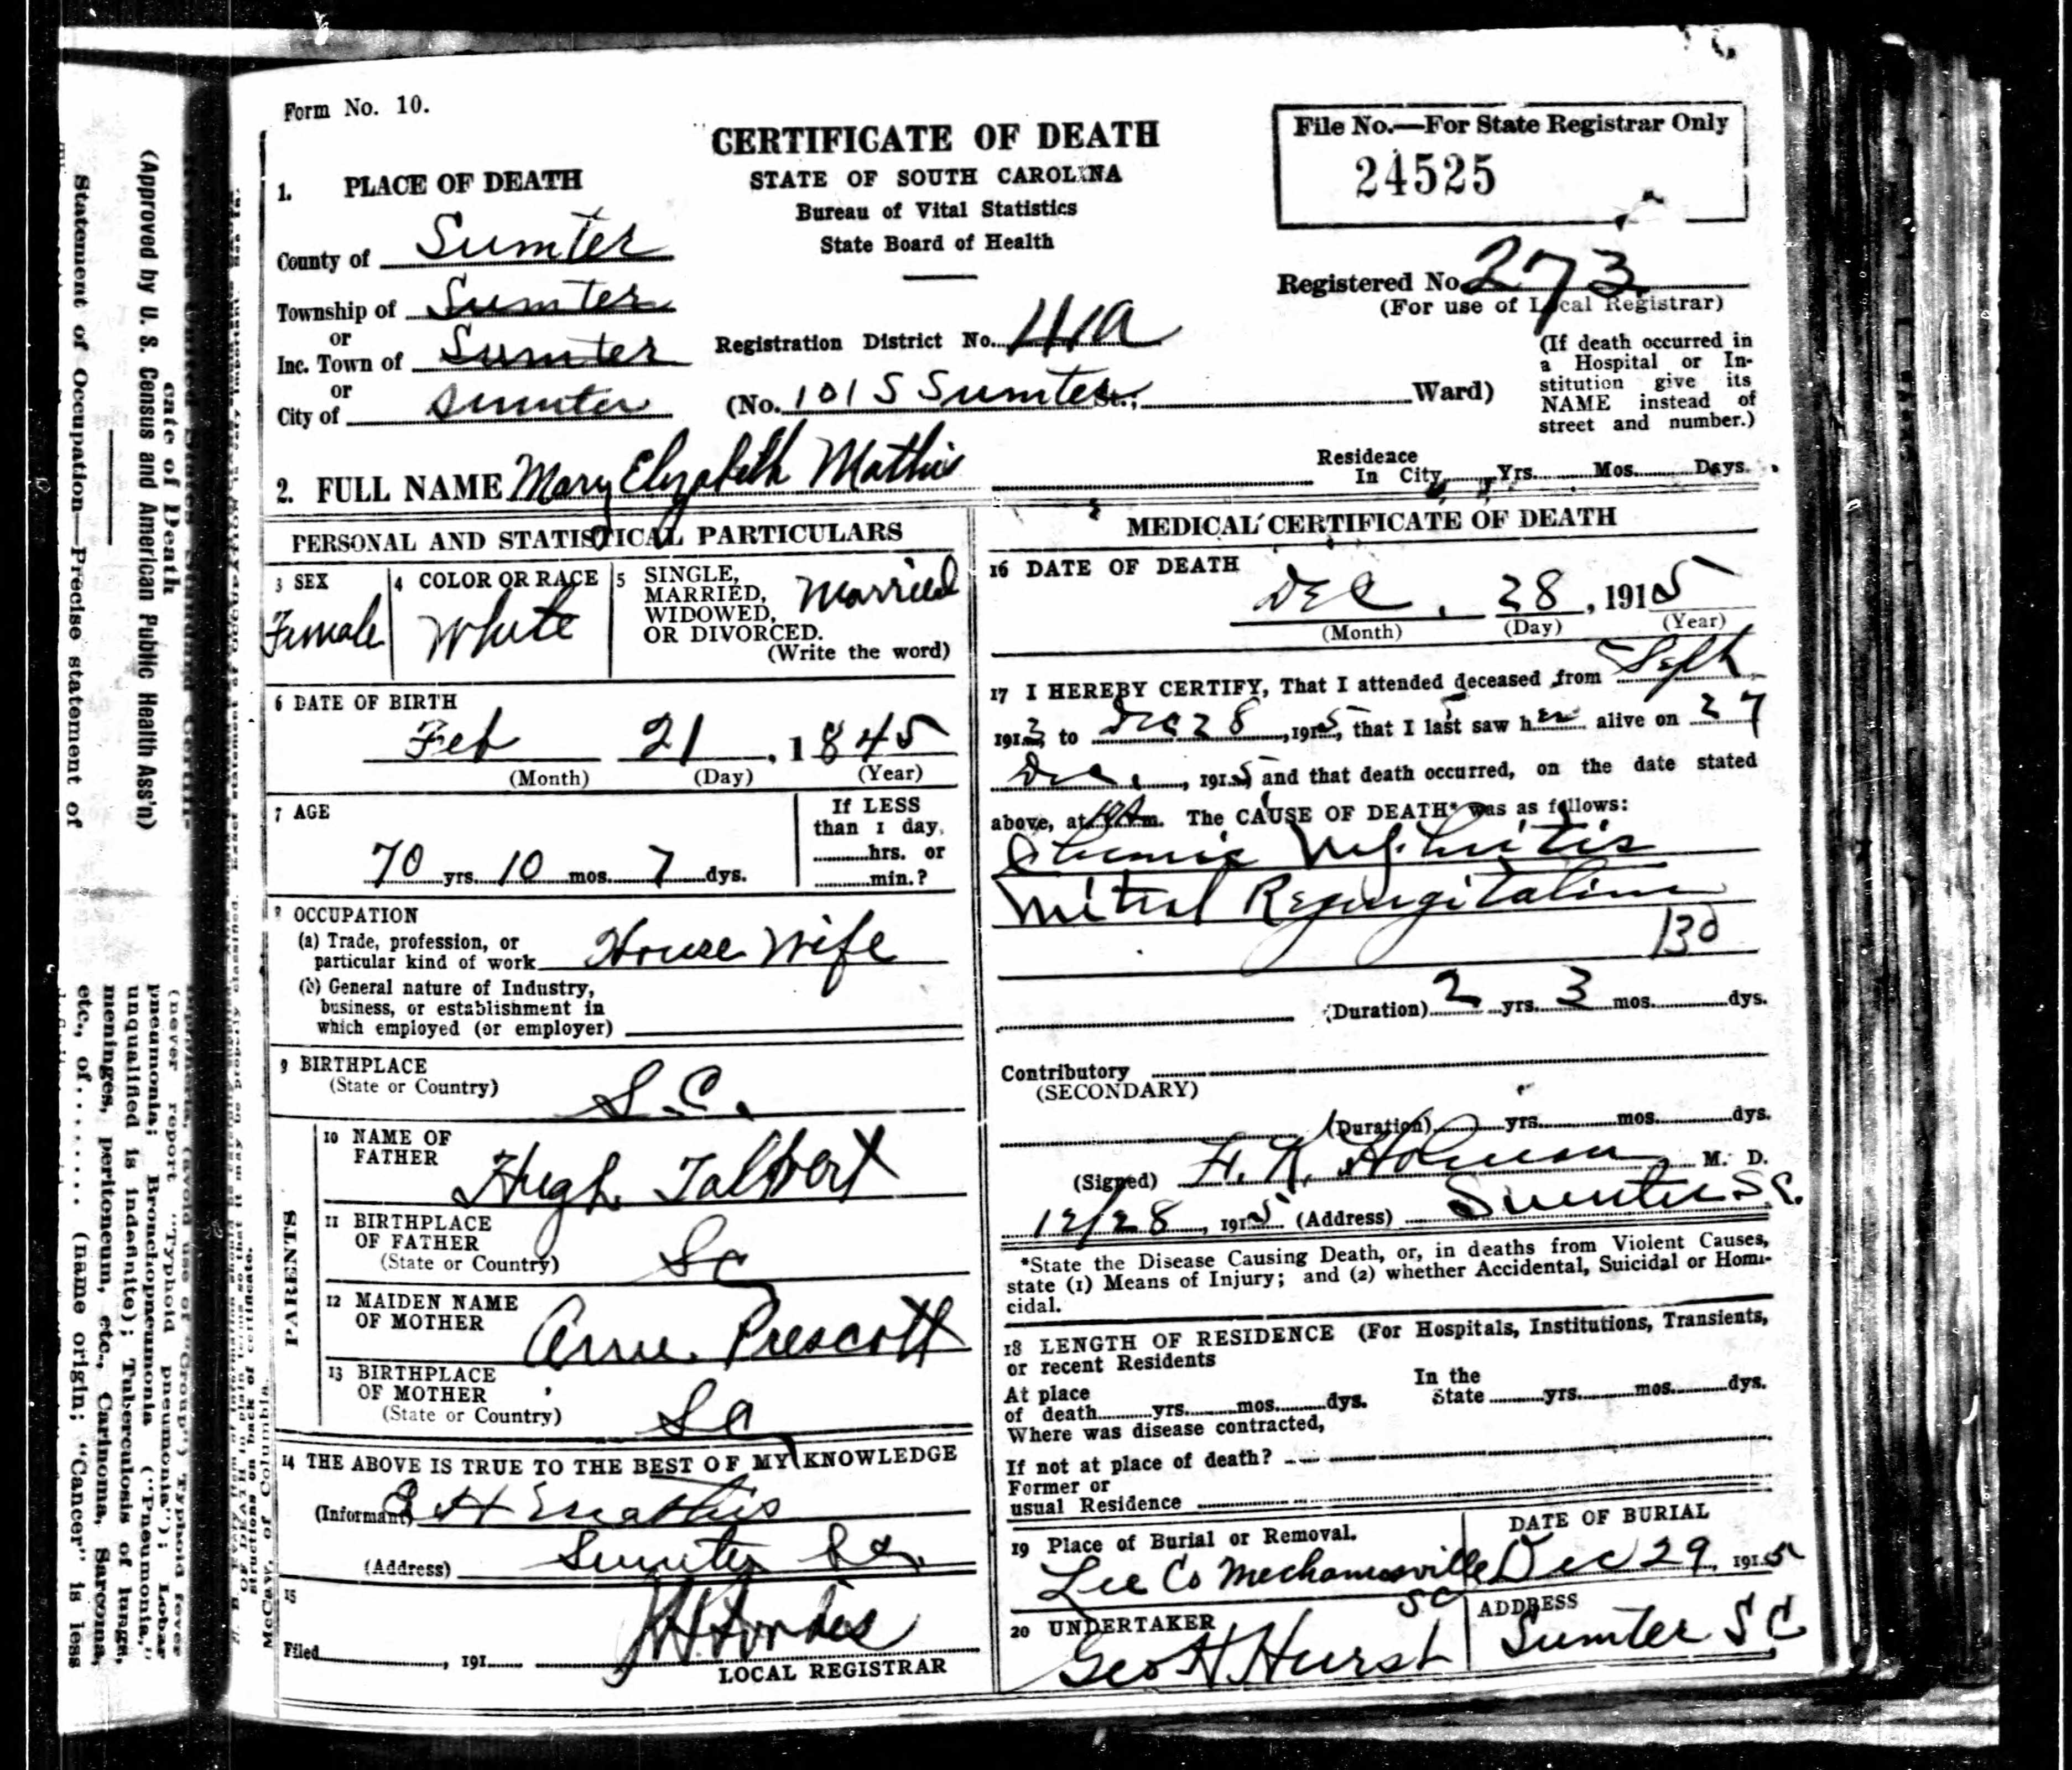 Form No. 10.
CERTIFICATE OF DEATH
STATE OF SOUTH CAROLINA
Bureau of Vital Statistics
State Board of Health
File No.—For State Registrar Only
24525
Registered No. 273
(For use of Local Registrar)
1. PLACE OF DEATH
County of Sumter
Township of Sumter
or
Inc. Town of Sumter
or
City of Sumter
Registration District No. 41a
(No. 101 S Sumter St.; Ward)
(If death occurred in
a Hospital or In-
stitution give its
NAME instead of
street and number.)
2. FULL NAME Mary Elizabeth Mathis
Residence
In City Yrs. Mos. Days.
PERSONAL AND STATISTICAL PARTICULARS
3 SEX
Female
4 COLOR OR RACE
White
5 SINGLE,
MARRIED,
WIDOWED,
OR DIVORCED.
(Write the word)
Married
6 DATE OF BIRTH
Feb 21, 1845
(Month) (Day) (Year)
7 AGE
70 yrs. 10 mos. 7 dys.
If LESS
than 1 day,
hrs. or
min.?
8 OCCUPATION
(a) Trade, profession, or
particular kind of work House Wife
(b) General nature of Industry,
business, or establishment in
which employed (or employer)
9 BIRTHPLACE
(State or Country) S.C.
PARENTS
10 NAME OF
FATHER Hugh Talbert
11 BIRTHPLACE
OF FATHER
(State or Country) Sc
12 MAIDEN NAME
OF MOTHER Annie Prescott
13 BIRTHPLACE
OF MOTHER
(State or Country) Sc
14 THE ABOVE IS TRUE TO THE BEST OF MY KNOWLEDGE
(Informant) H Mathis
(Address) Sumter
15
Filed , 191
LOCAL REGISTRAR
MEDICAL CERTIFICATE OF DEATH
16 DATE OF DEATH
Dec. 28, 1915
(Month) (Day) (Year)
17 I HEREBY CERTIFY, That I attended deceased from Sept
1913, to Dec 28, 1915, that I last saw her alive on 27
Dec., 1915 and that death occurred, on the date stated
above, at m. The CAUSE OF DEATH* was as follows:
Chronic Nephritis
Mitral Regurgitation
130
(Duration) 2 yrs. 3 mos. dys.
Contributory
(SECONDARY)
(Duration) yrs. mos. dys.
(Signed) H. K. Holman M. D.
12/28, 1915 (Address) Sumter S.C.
*State the Disease Causing Death, or, in deaths from Violent Causes,
state (1) Means of Injury; and (2) whether Accidental, Suicidal or Homi-
cidal.
18 LENGTH OF RESIDENCE (For Hospitals, Institutions, Transients,
or recent Residents
At place
of death yrs. mos. dys.
In the
State yrs. mos. dys.
Where was disease contracted,
If not at place of death?
Former or
usual Residence
19 Place of Burial or Removal.
Lee Co Mechanicsville
SC
DATE OF BURIAL
Dec 29, 1915
20 UNDERTAKER
Geo H Hurst
ADDRESS
Sumter S C
cate of Death
(Approved by U. S. Census and American Public Health Ass'n)
Statement of Occupation—Precise statement of
(never report "Typhoid pneumonia"); Lobar
pneumonia; Bronchopneumonia ("Pneumonia,"
unqualified is indefinite); Tuberculosis of lungs,
meninges, peritoneum, etc., Carinoma, Sarcoma,
etc., of........ (name origin; "Cancer" is less